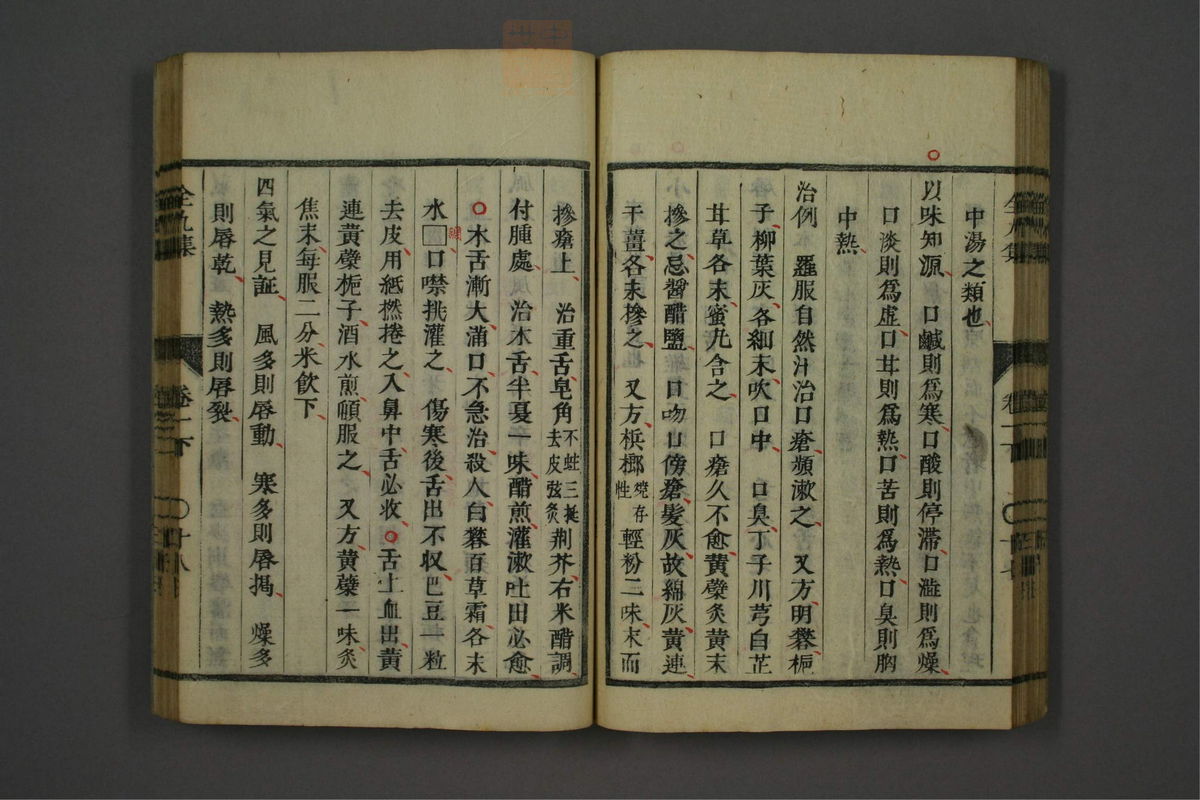 中湯之類也
以味知源　口鹹則爲寒口酸則停滯口澁則爲燥
口淡則爲虛口甘則爲熱口苦則爲熱口臭則胸
中熱
治例　羅服自然汁治口瘡頻漱之　又方明礬梔
子柳葉灰各細末吹口中　口臭丁子川芎白芷
甘草各末蜜丸含之　口瘡久不愈黄蘗炙黄末
摻之忌醤醋鹽　口吻口傍瘡髮灰故綿灰黄連
干薑各末摻之　又方梹榔燒存性輕粉二味末而
摻瘡上　治重舌皂角不蛀三挺去皮弦炙荆芥右米醋調
付腫處　治木舌半夏一味醋煎灌漱吐出必愈
木舌漸大滿口不急治殺人白礬百草霜各末
水口噤挑灌之　傷寒後舌出不収巴豆一粒
去皮用紙撚捲之入鼻中舌必收　舌上血出黄
連黄蘗梔子酒水煎頓服之　又方黄蘗一味炙
焦末每服二分米飲下
四氣之見証　風多則唇動　寒多則唇揭　燥多
則唇乾　熱多則唇裂
全九集
卷一下
十八
全九集
卷一下
十七